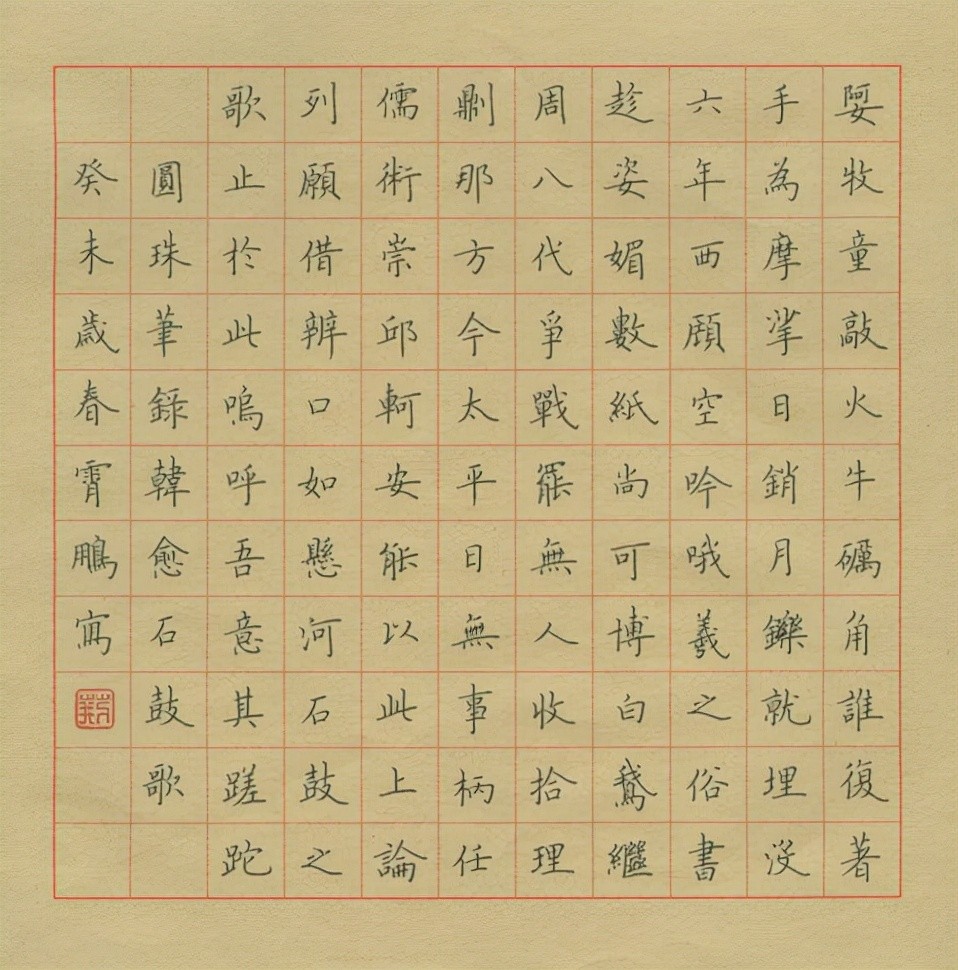 娿牧童敲火牛礪角誰復著
手為摩挲日銷月鑠就埋沒
六年西顧空吟哦羲之俗書
趁姿媚數紙尚可博白鵞繼
周八代爭戰罷無人收拾理
則那方今太平日無事柄任
儒術崇邱軻安能以此上論
列願借辨口如懸河石鼓之
歌止於此嗚呼吾意其蹉跎
圓珠筆錄韓愈石鼓歌
癸未歲春霄鵬寫